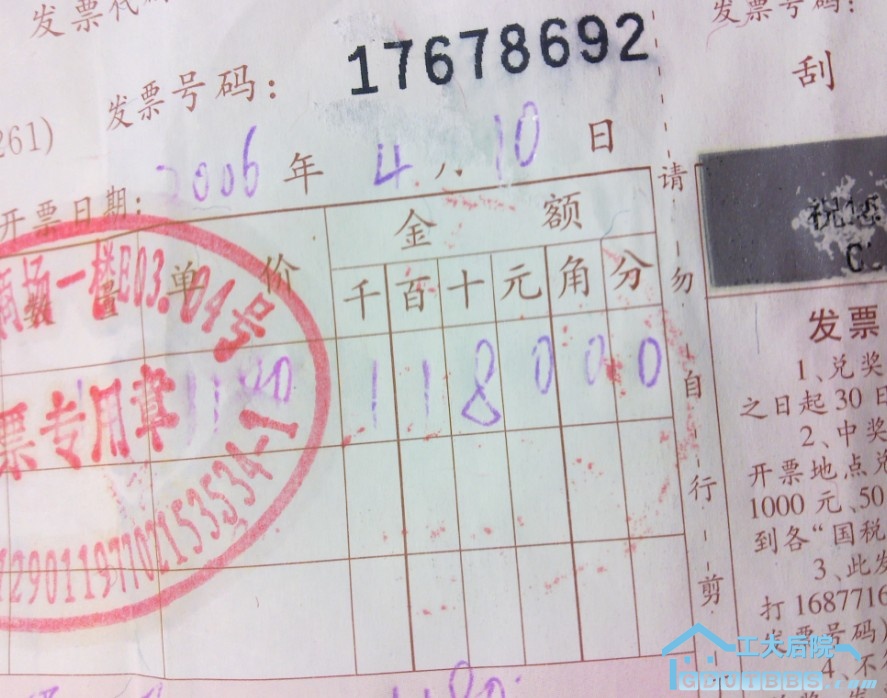 发票代码
发票号码:
发票号码: 17678692
刮
261)
开票日期: 2006 年 4 月 10 日
数 量 单 价 金 额
千 百 十 元 角 分
1180 1 1 8 0 0 0
商场一楼E03.04号
票专用章
290119770215 3534-1
请 勿 自 行 剪
祝您
发票
1、兑奖
之日起30日
2、中奖
开票地点兑
1000元、50
到各“国税
3、此发
打1687716
发票号码)
4、不
1180
工大后院
GDUTBBS.com